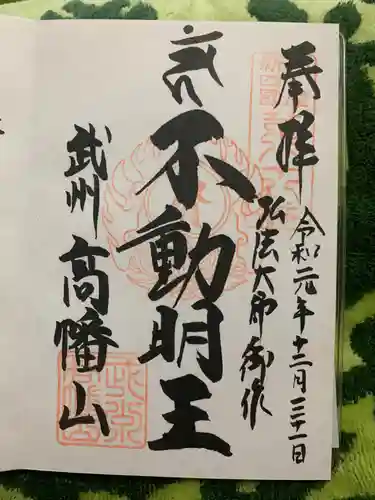 奉拝
令和元年十二月三十一日
弘法大師御作
不動明王
武州 高幡山